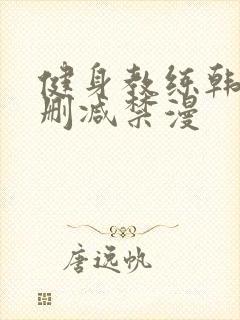 健身教练韩
删减禁漫
唐远帆